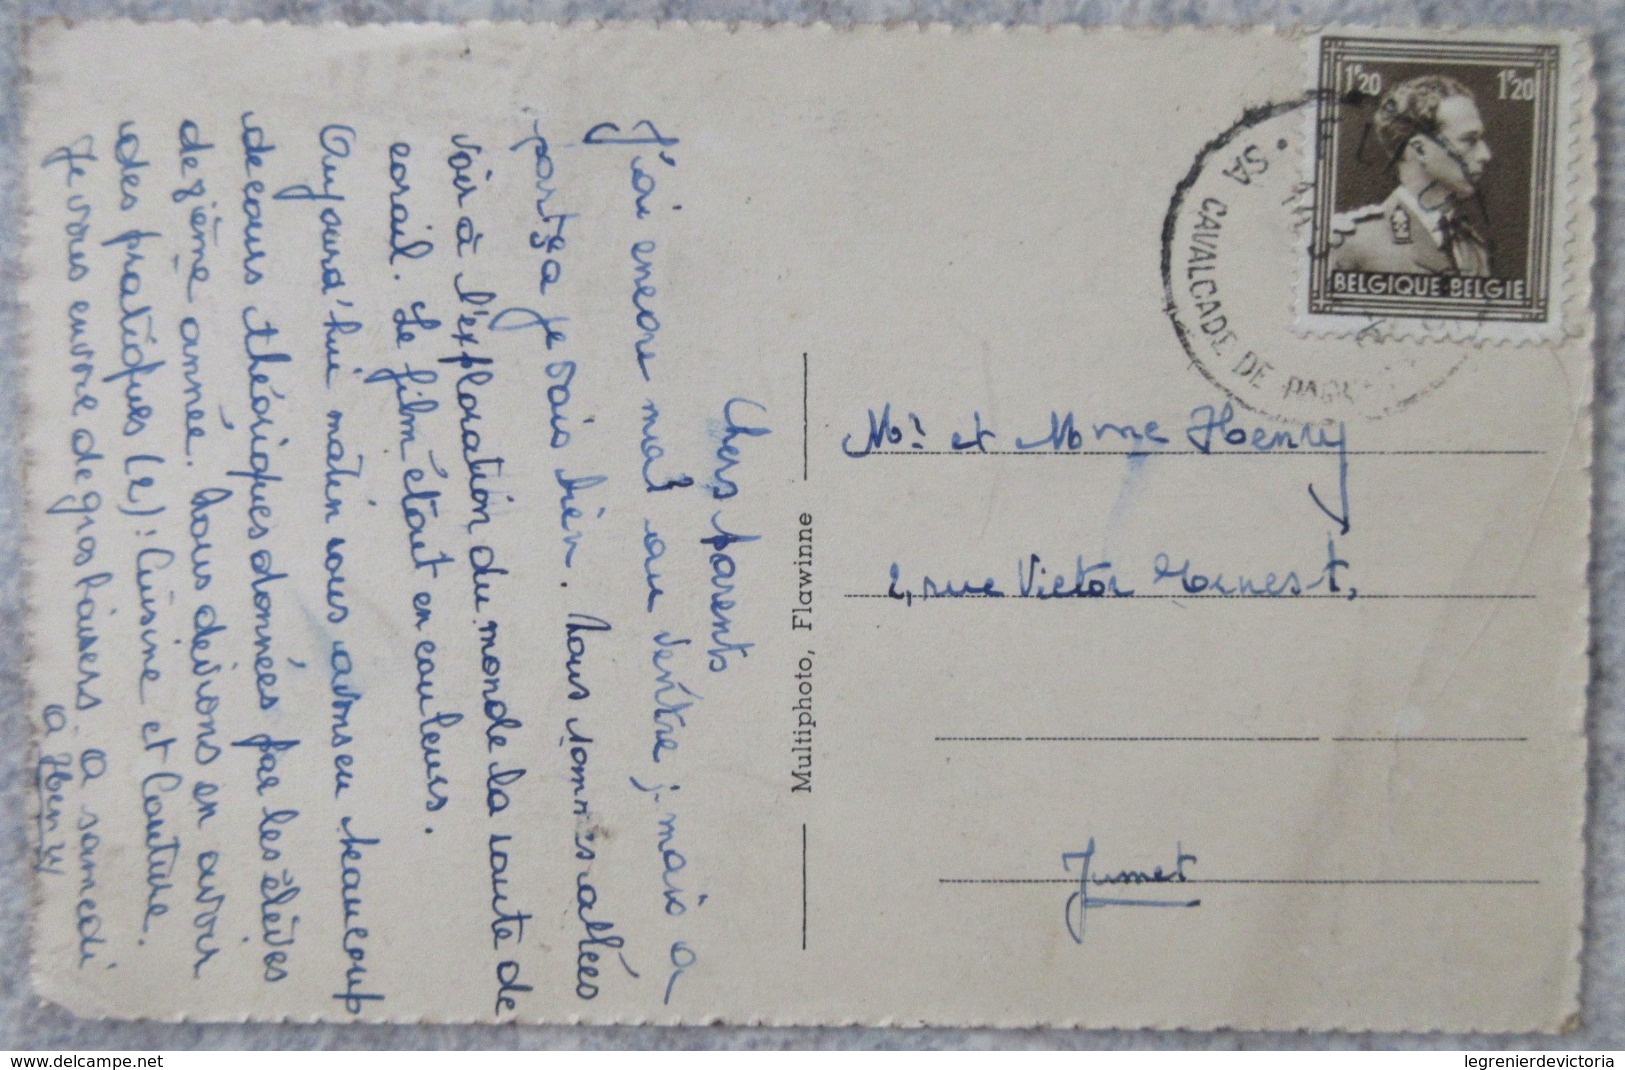 Chers parents
J'ai encore mal au ventre, mais a
part ça je vais bien. Nous sommes allées
voir à l'exploration du monde la route de
corail. Le film était en couleurs.
Aujourd'hui matin nous avons eu beaucoup
de cours théoriques données par les élèves
de 2ième année. Nous devions en avoir
des pratiques (2): Cuisine et Couture.
Je vous envoie de gros baisers. a samedi
a Henry
Multiphoto, Flawinne
1F20 1F20
BELGIQUE-BELGIE
SA CAVALCADE DE
Mr et Mme Henry
2, rue Victor Ernest,
Jumet
delcampe.net
legrenierdevictoria